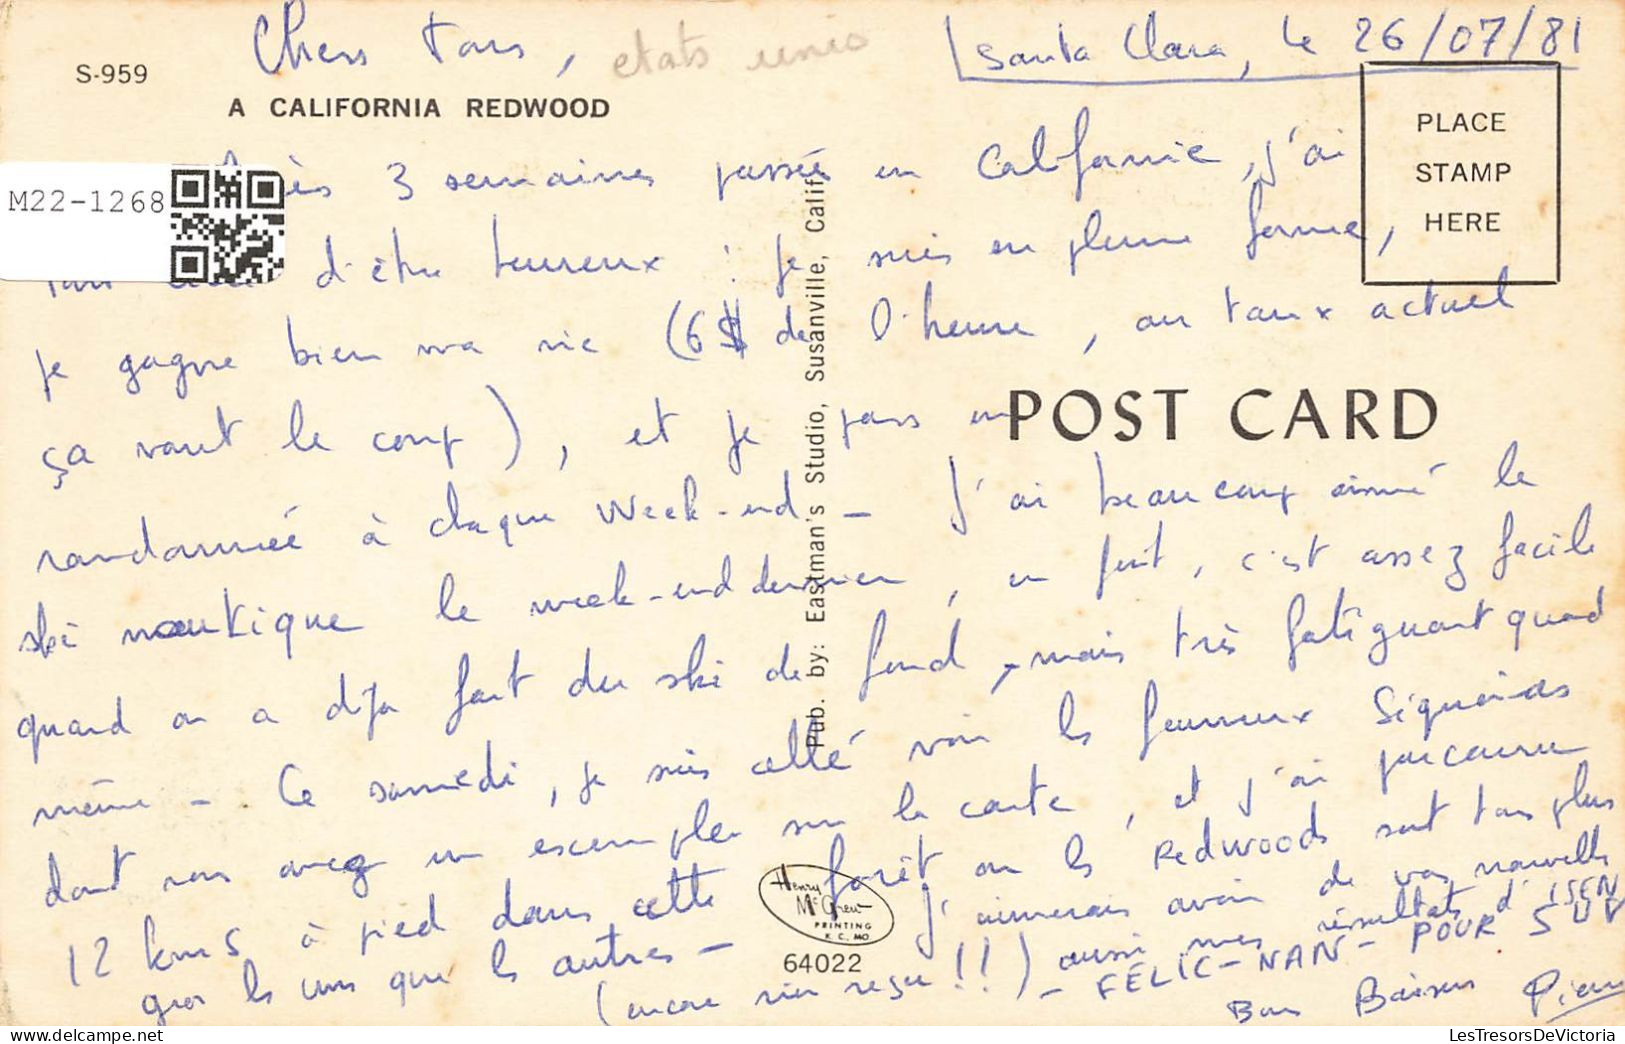 Chers tous, etats unis
Santa Clara, le 26/07/81
S-959
A CALIFORNIA REDWOOD
PLACE
STAMP
HERE
M22-1268
3 semaines passées en Californie, j'ai
d'être heureux : je suis en pleine forme,
je gagne bien ma vie (6$ de l'heure, au taux actuel
ça vaut le coup), et je pars en
POST CARD
randonnée à chaque week-end - J'ai beaucoup aimé le
ski nautique le week-end dernier, en fait, c'est assez facile
quand on a déjà fait du ski de fond, mais très fatiguant quand
même - Ce samedi, je suis allé voir les fameux Séquoias
dont vous avez un exemple sur la carte, et j'ai parcouru
12 kms à pied dans cette forêt où les Redwoods sont tous plus
gros les uns que les autres - J'aimerais avoir de vos nouvelles
(encore rien reçu!!) aussi mes résultats d'ISEN
- FÉLIC-NAN- POUR SUV
Bons Baisers Pierre
Pub. by: Eastman's Studio, Susanville, Calif.
Henry
McGrew
PRINTING
K.C. MO
64022
LesTresorsDeVictoria